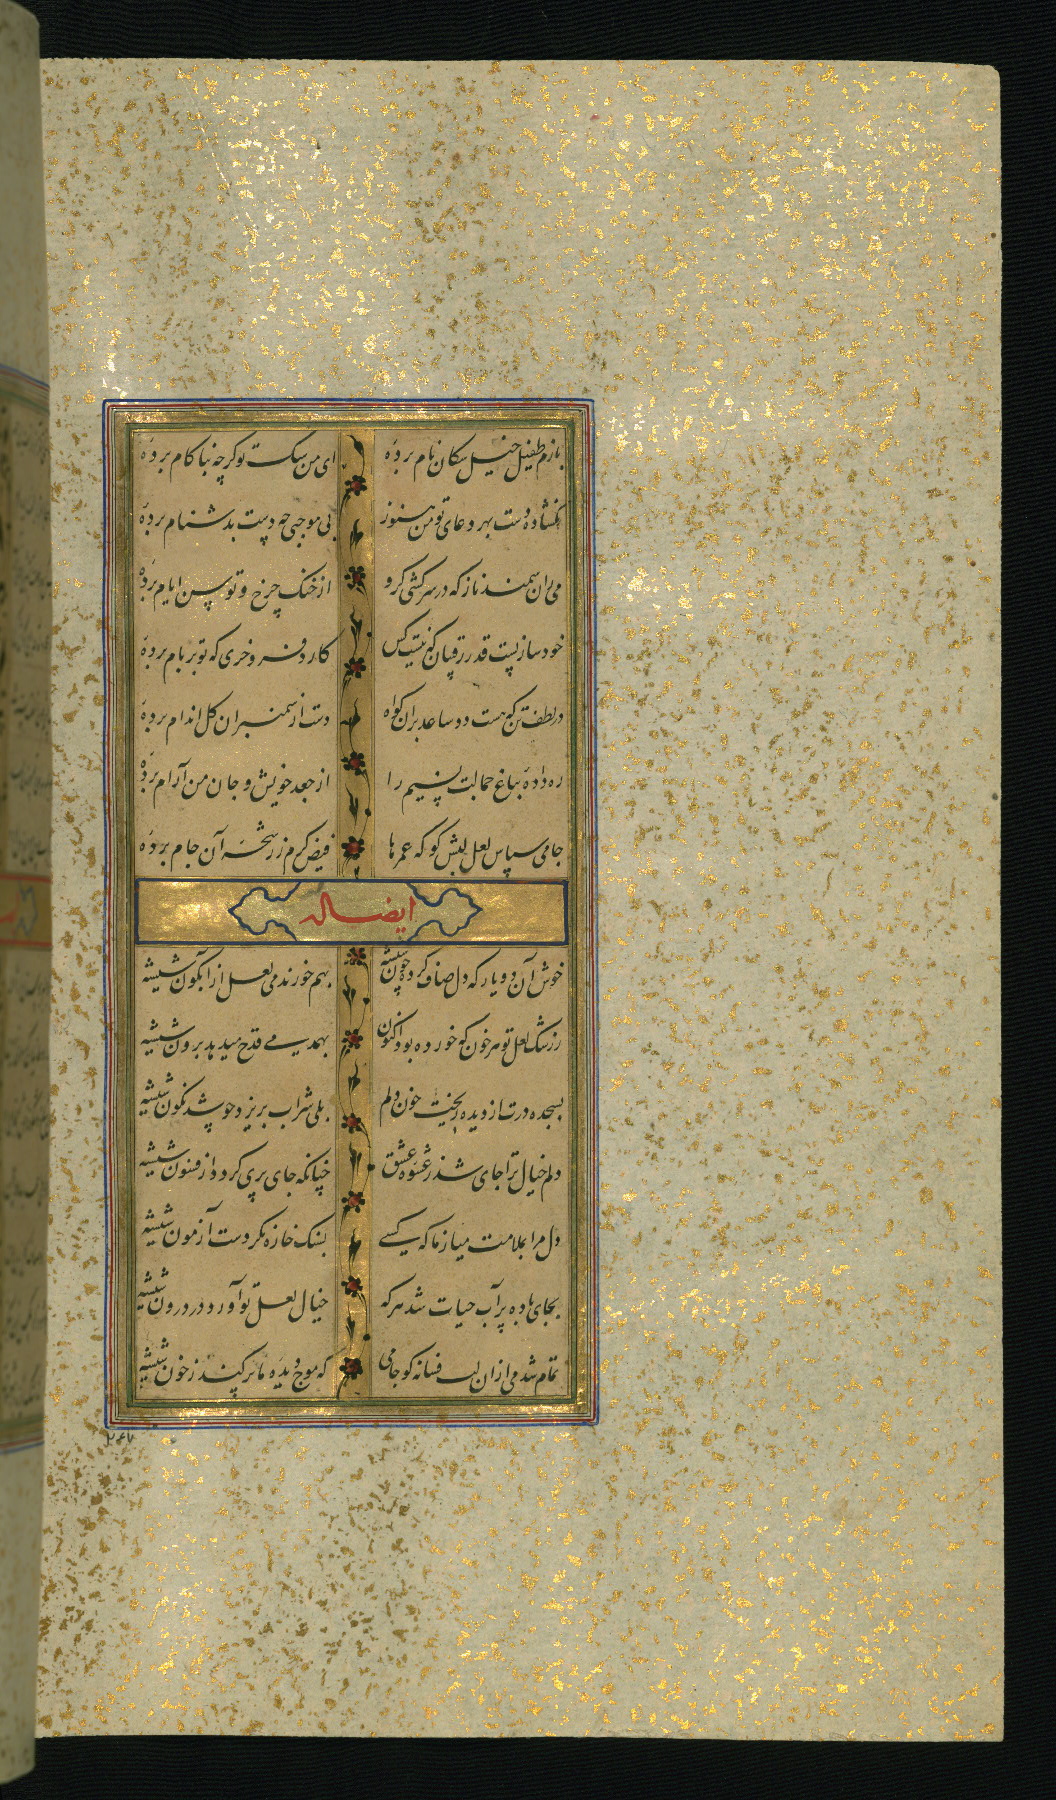 بازم طفیل خیل سکان نام بردهٔ ای من سکت تو کرچه نبا کام بردهٔ
نکشاده دست بهر دعای تو من هنوز بی موجبی چه دست بدشنام بردهٔ
می ران سمند ناز که در سرکشی کرو از خنک چرخ و توسن ایام بردهٔ
خود ساز پست قدر رقیبان که نیست کس کارد فرو خری که تو بر بام بردهٔ
در لطف تن که هست دو ساعد بران کواه دست از سمنبران کل اندام بردهٔ
ره دادهٔ بباغ جمالت نسیم را از جعد خویش و جان من آرام بردهٔ
جامی سپاس لعل لبش کو که عمرها فیض کرم ز رشحهٔ آن جام بردهٔ
ایضا له
خوش آن دو یار که دل صاف کرده چون شیشه بهم خورند می لعل از آبکون شیشه
ز رشک لعل تو هر خون که خورده بود اکنون بهمدمی قدح میدهد برون شیشه
بسجده درت از دیده ریخت خون دلم بلی شراب بریزد چو شد نکون شیشه
دلم خیال ترا جای شد ز عشوه عشق چنانکه جای پری کردد از فسون شیشه
دل مرا بملامت میازما که کسی بسنک خاره نکردست آزمون شیشه
بجای باده پر آب حیات شد هر که خیال لعل تو آورد در درون شیشه
تمام شد می ازان لب فسانه کو جامی که موج دیدهٔ ما پر کند ز خون شیشه
۲۶۷